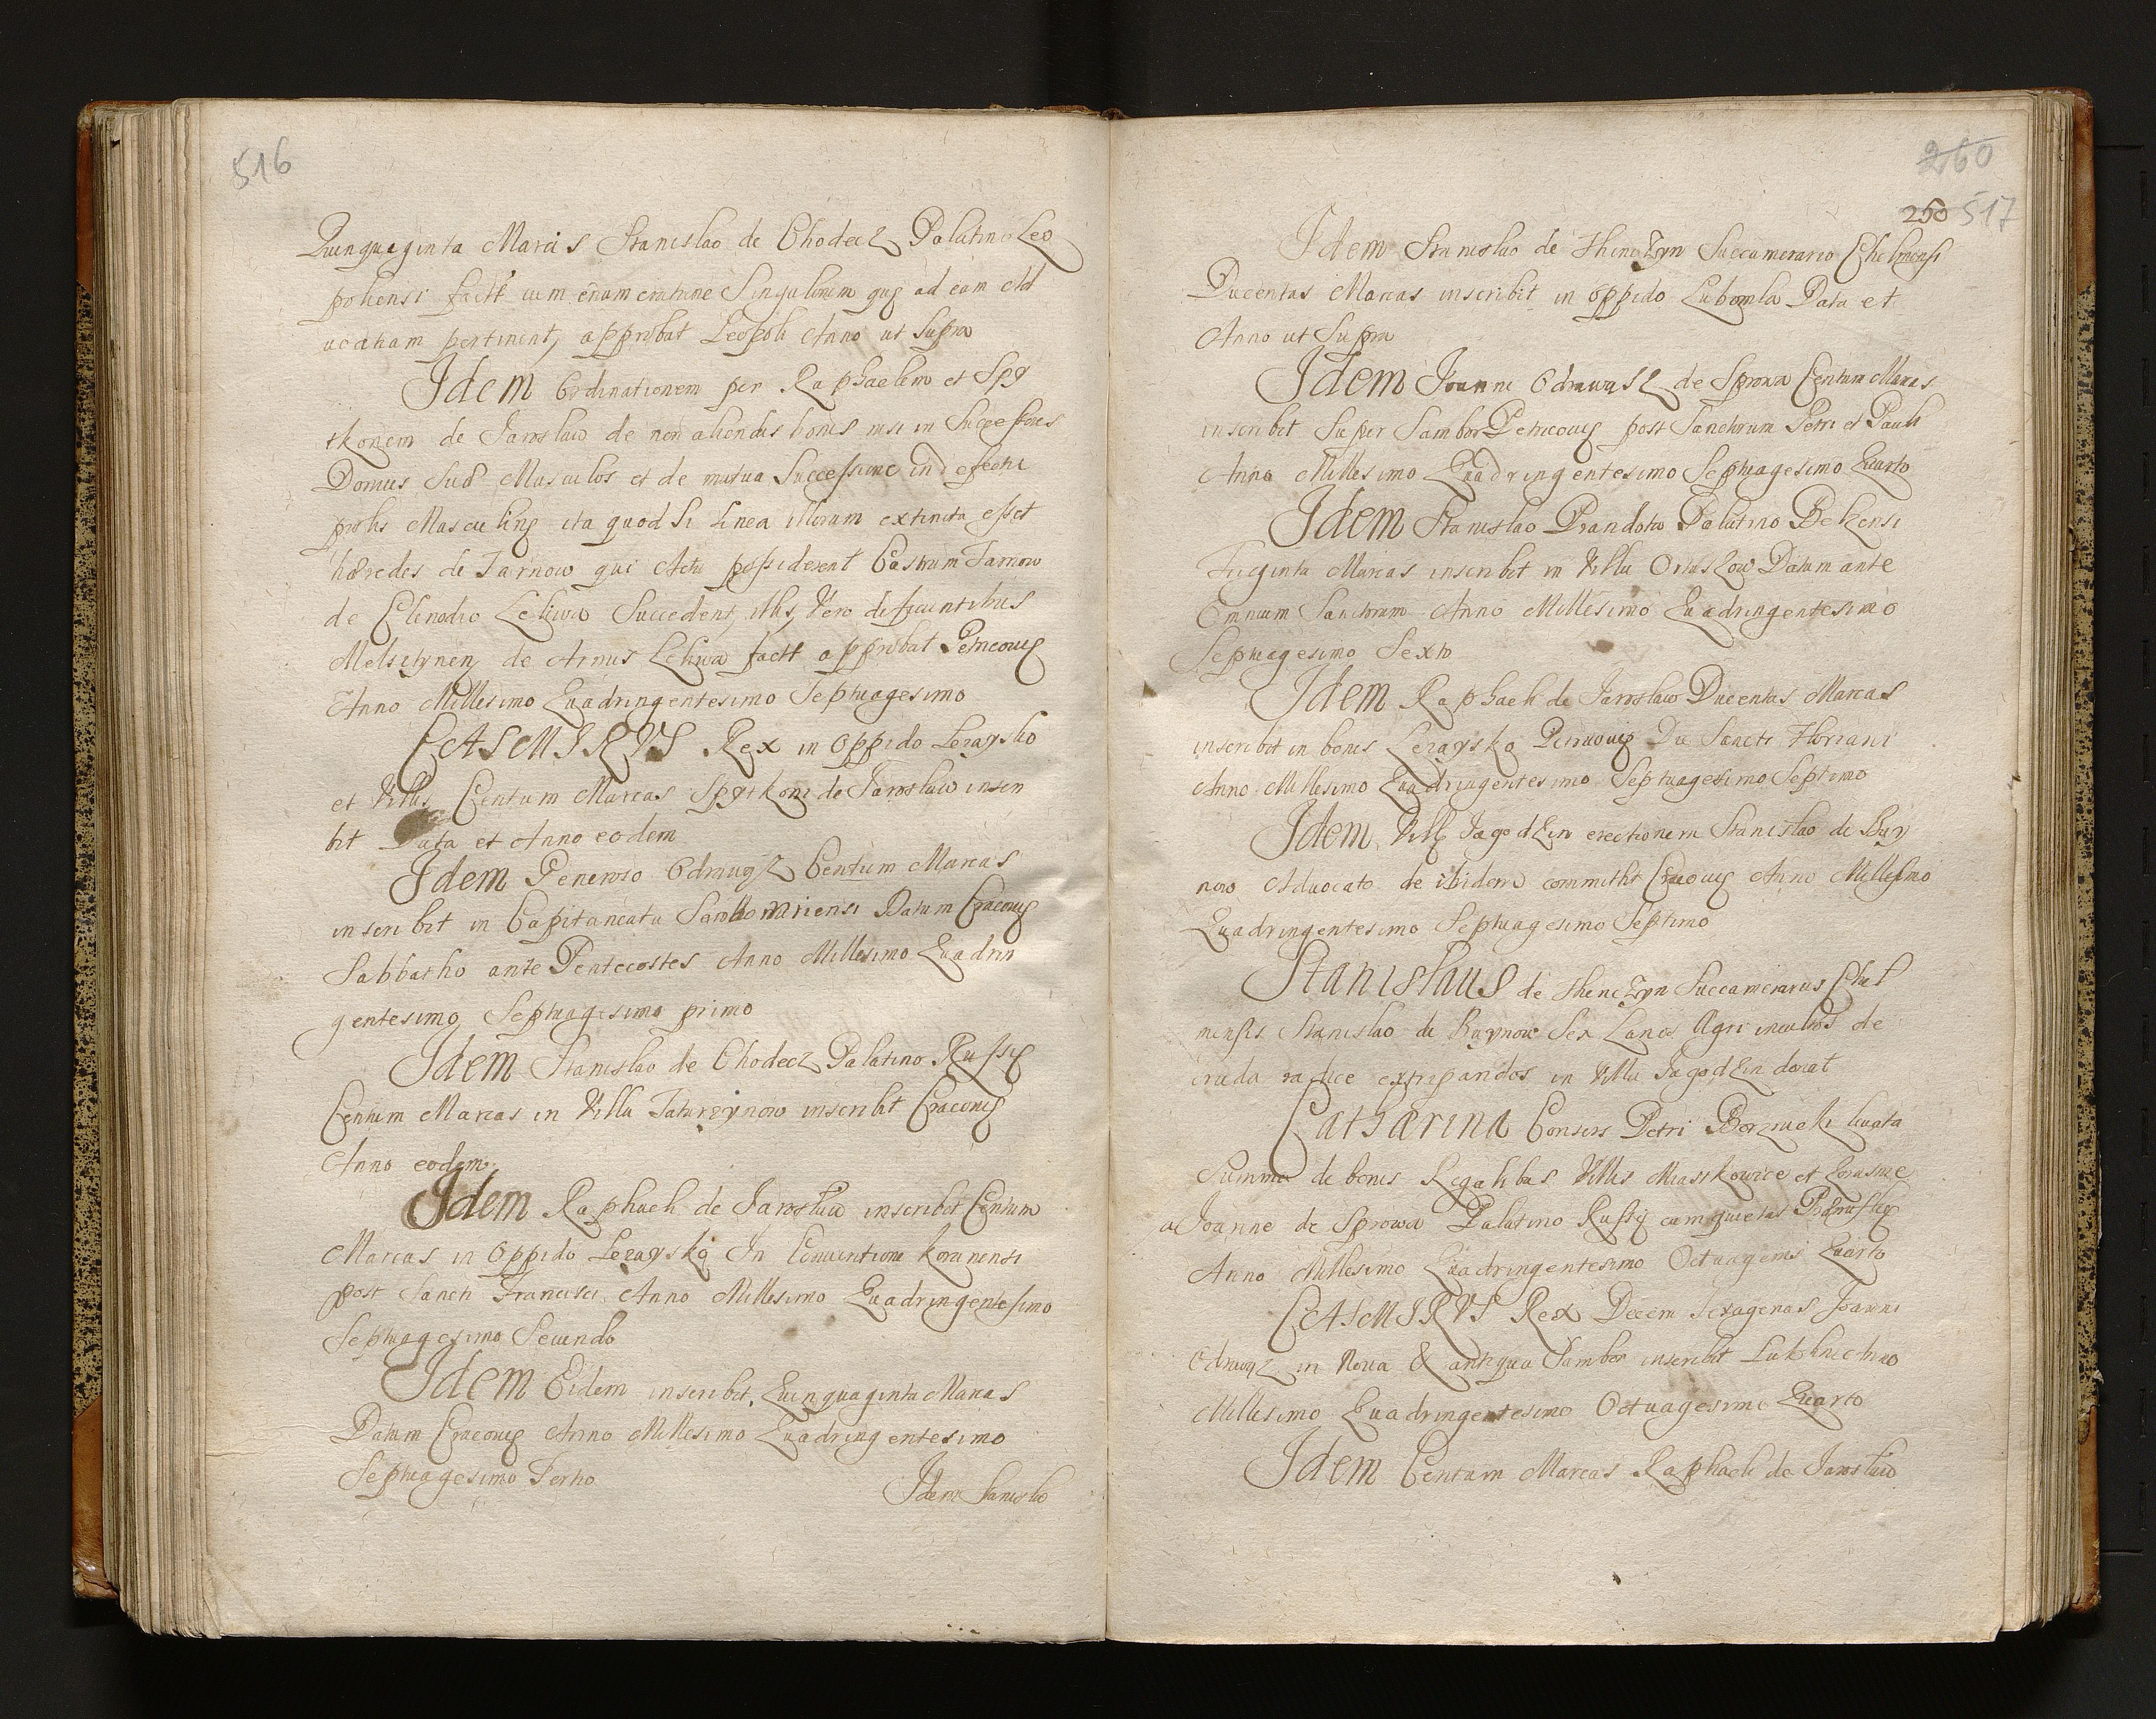 516
Quinquaginta Marcis Stanislao de Chodecz Palatino Leo
poliensi factt cum enumeratione Singulorum quę ad eam Ad
uocatiam pertinent, approbat Leopoli Anno ut Supra
Idem Ordinationem per Raphaelem et Spy
tkonem de Jaroslaw de non aliendis bonis nisi in Successores
Domus Suæ Musculos et de mutua Successione in defectu
prolis Masculinę ita quod Si Linea illorum extincta esset
hæredes de Tarnow qui Actu possiderent Castrum Tarnow
de Clenodio Leliwa Succedent, illis, Vero deficientibus
Melsztynen de Armis Leliwa factt approbat Petricouię
Anno Millesimo Quadringentesimo Septuagesimo
CASMIRVS Rex in Oppido Lezaysko
et Villis Centum Marcas Spytkoni de Jaroslaw inscri
bit Data et Anno eodem
Idem Generoso Odrowąz Centum Marcas
inscribit in Capitaneatu Samboriensi Datum Cracouię
Sabbatho ante Pentecostes Anno Millesimo Quadrin
gentesimo Septuagesimo primo
Idem Stanislao de Chodecz Palatino Russię
Centum Marcas in Villa Taturzynow inscribit Cracouię
Anno eodem
Idem Raphaeli de Jaroslaw inscribit Centum
Marcas in Oppido Lezaysko In Conuentione korcinensi
post Sancti Francisci Anno Millesimo Quadringentesimo
Septuagesimo Secundo
Idem Eidem inscribit Quinquaginta Marcas
Datum Cracouię Anno Millesimo Quadringentesimo
Septuagesimo Tertio
Idem Stanislao
260
250 517
Idem Stanislao de Thenczyn Succamerario Chelmensi
Ducentas Marcas inscribit in Oppido Lubomla Data et
Anno ut Supra
Idem Joanni Odrowąsz de Sprowa Centum Marcas
inscribit Super Sambor Petricouię post Sanctorum Petri et Pauli
Anno Millesimo Quadringentesimo Septuagesimo Quarto
Idem Stanislao Prandota Palatino Belzensi
Triginta Marcas inscribit in Villa Datum ante
Omnium Sanctorum Anno Millesimo Quadringentesimo
Septuagesimo Sexto
Idem Raphaeli de Jaroslaw Ducentas Marcas
inscribit in bonis Lezaysko Petricouię Die Sancti Floriani
Anno Millesimo Quadringentesimo Septuagesimo Septimo
Idem Villę Jagodzin erectionem Stanislao de Buy
now Aduocato de ibidem committit Cracouię Anno Millesimo
Quadringentesimo Septuagesimo Septimo
Stanislaus de Thenczyn Succamerarius Chel
mensis Stanislao de Buynow Sex Laneos Agri incultos de
cruda radice extirpandos in Villa Jagodzin donat
Catharina Consors Petri leuata
Summa de bonis Regalibus Villis Miastkowice et
a Joanne de Sprowa Palatino Russię eum quietat Premislię
Anno Millesimo Quadringentesimo Octuagesimo Quarto
CASMIRVS Rex Decem Sexagenas Joanni
Odrowąz in Noua & antiqua Sambor inscribit
Millesimo Quadringentesimo Octuagesimo Quarto
Idem Centum Marcas Raphaeli de Jaroslaw